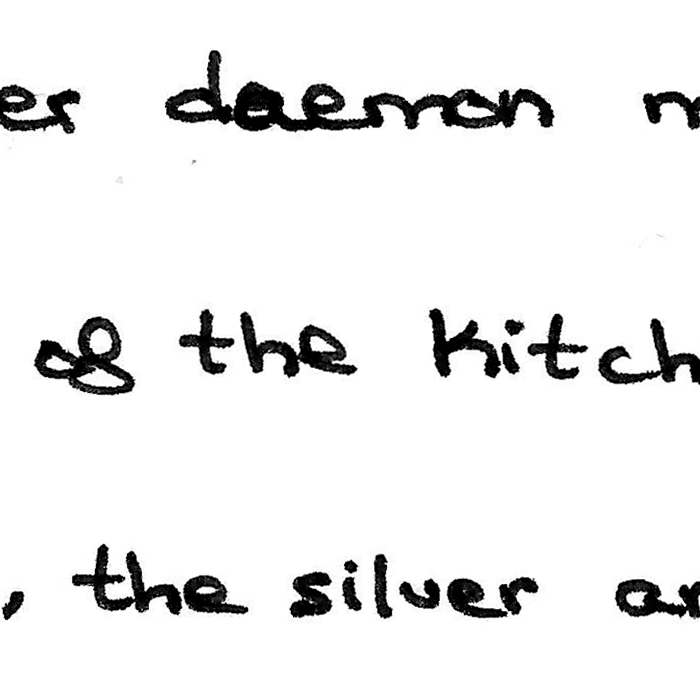 er daemon m
of the kitch
, the silver an